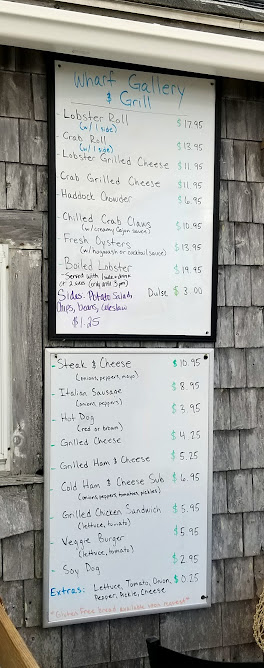 Wharf Gallery
& Grill
- Lobster Roll $17.95
(w/1 side)
- Crab Roll $13.95
(w/1 side)
- Lobster Grilled Cheese $11.95
- Crab Grilled Cheese $11.95
- Haddock Chowder $6.95
- Chilled Crab Claws $10.95
(w/creamy Cajun sauce)
- Fresh Oysters $13.95
(w/ or cocktail sauce)
- Boiled Lobster $19.95
- Served with
or 2 sides (only until 5pm)
Sides- Potato Salad, Dulse $3.00
Chips, beans, coleslaw
$1.25
- Steak & Cheese $10.95
(onions, peppers, mayo)
- Italian Sausage $8.95
(onions, peppers)
- Hot Dog $3.95
(red or brown)
- Grilled Cheese $4.25
- Grilled Ham & Cheese $5.25
- Cold Ham & Cheese Sub $6.95
(onions, peppers, tomatoes, pickles)
- Grilled Chicken Sandwich $5.95
(lettuce, tomato)
- Veggie Burger $5.95
(lettuce, tomato)
- Soy Dog $2.95
Extras: Lettuce, Tomato, Onion, $0.25
Pepper, Pickle, Cheese
*Gluten Free bread available upon request*